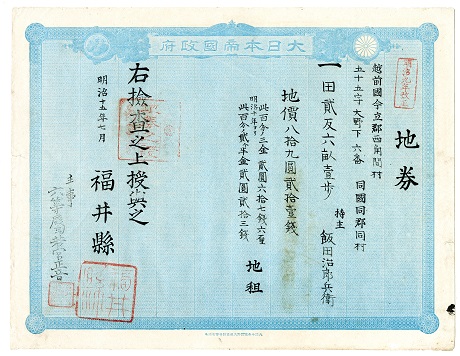 府政國帝本日大
地券
越前國今立郡西角間村
五十五字大野下六番 同國同郡同村
一田貳反六畝壹步 持主 飯田治郎兵衛
地價八拾九圓貳拾壹錢
此百分ノ三金 貳圓六拾七錢六厘
地租
明治十年ヨリ
此百分ノ貳ケ半金 貳圓貳拾三錢
右檢查之上授與之
明治十五年七月
福井縣
主事